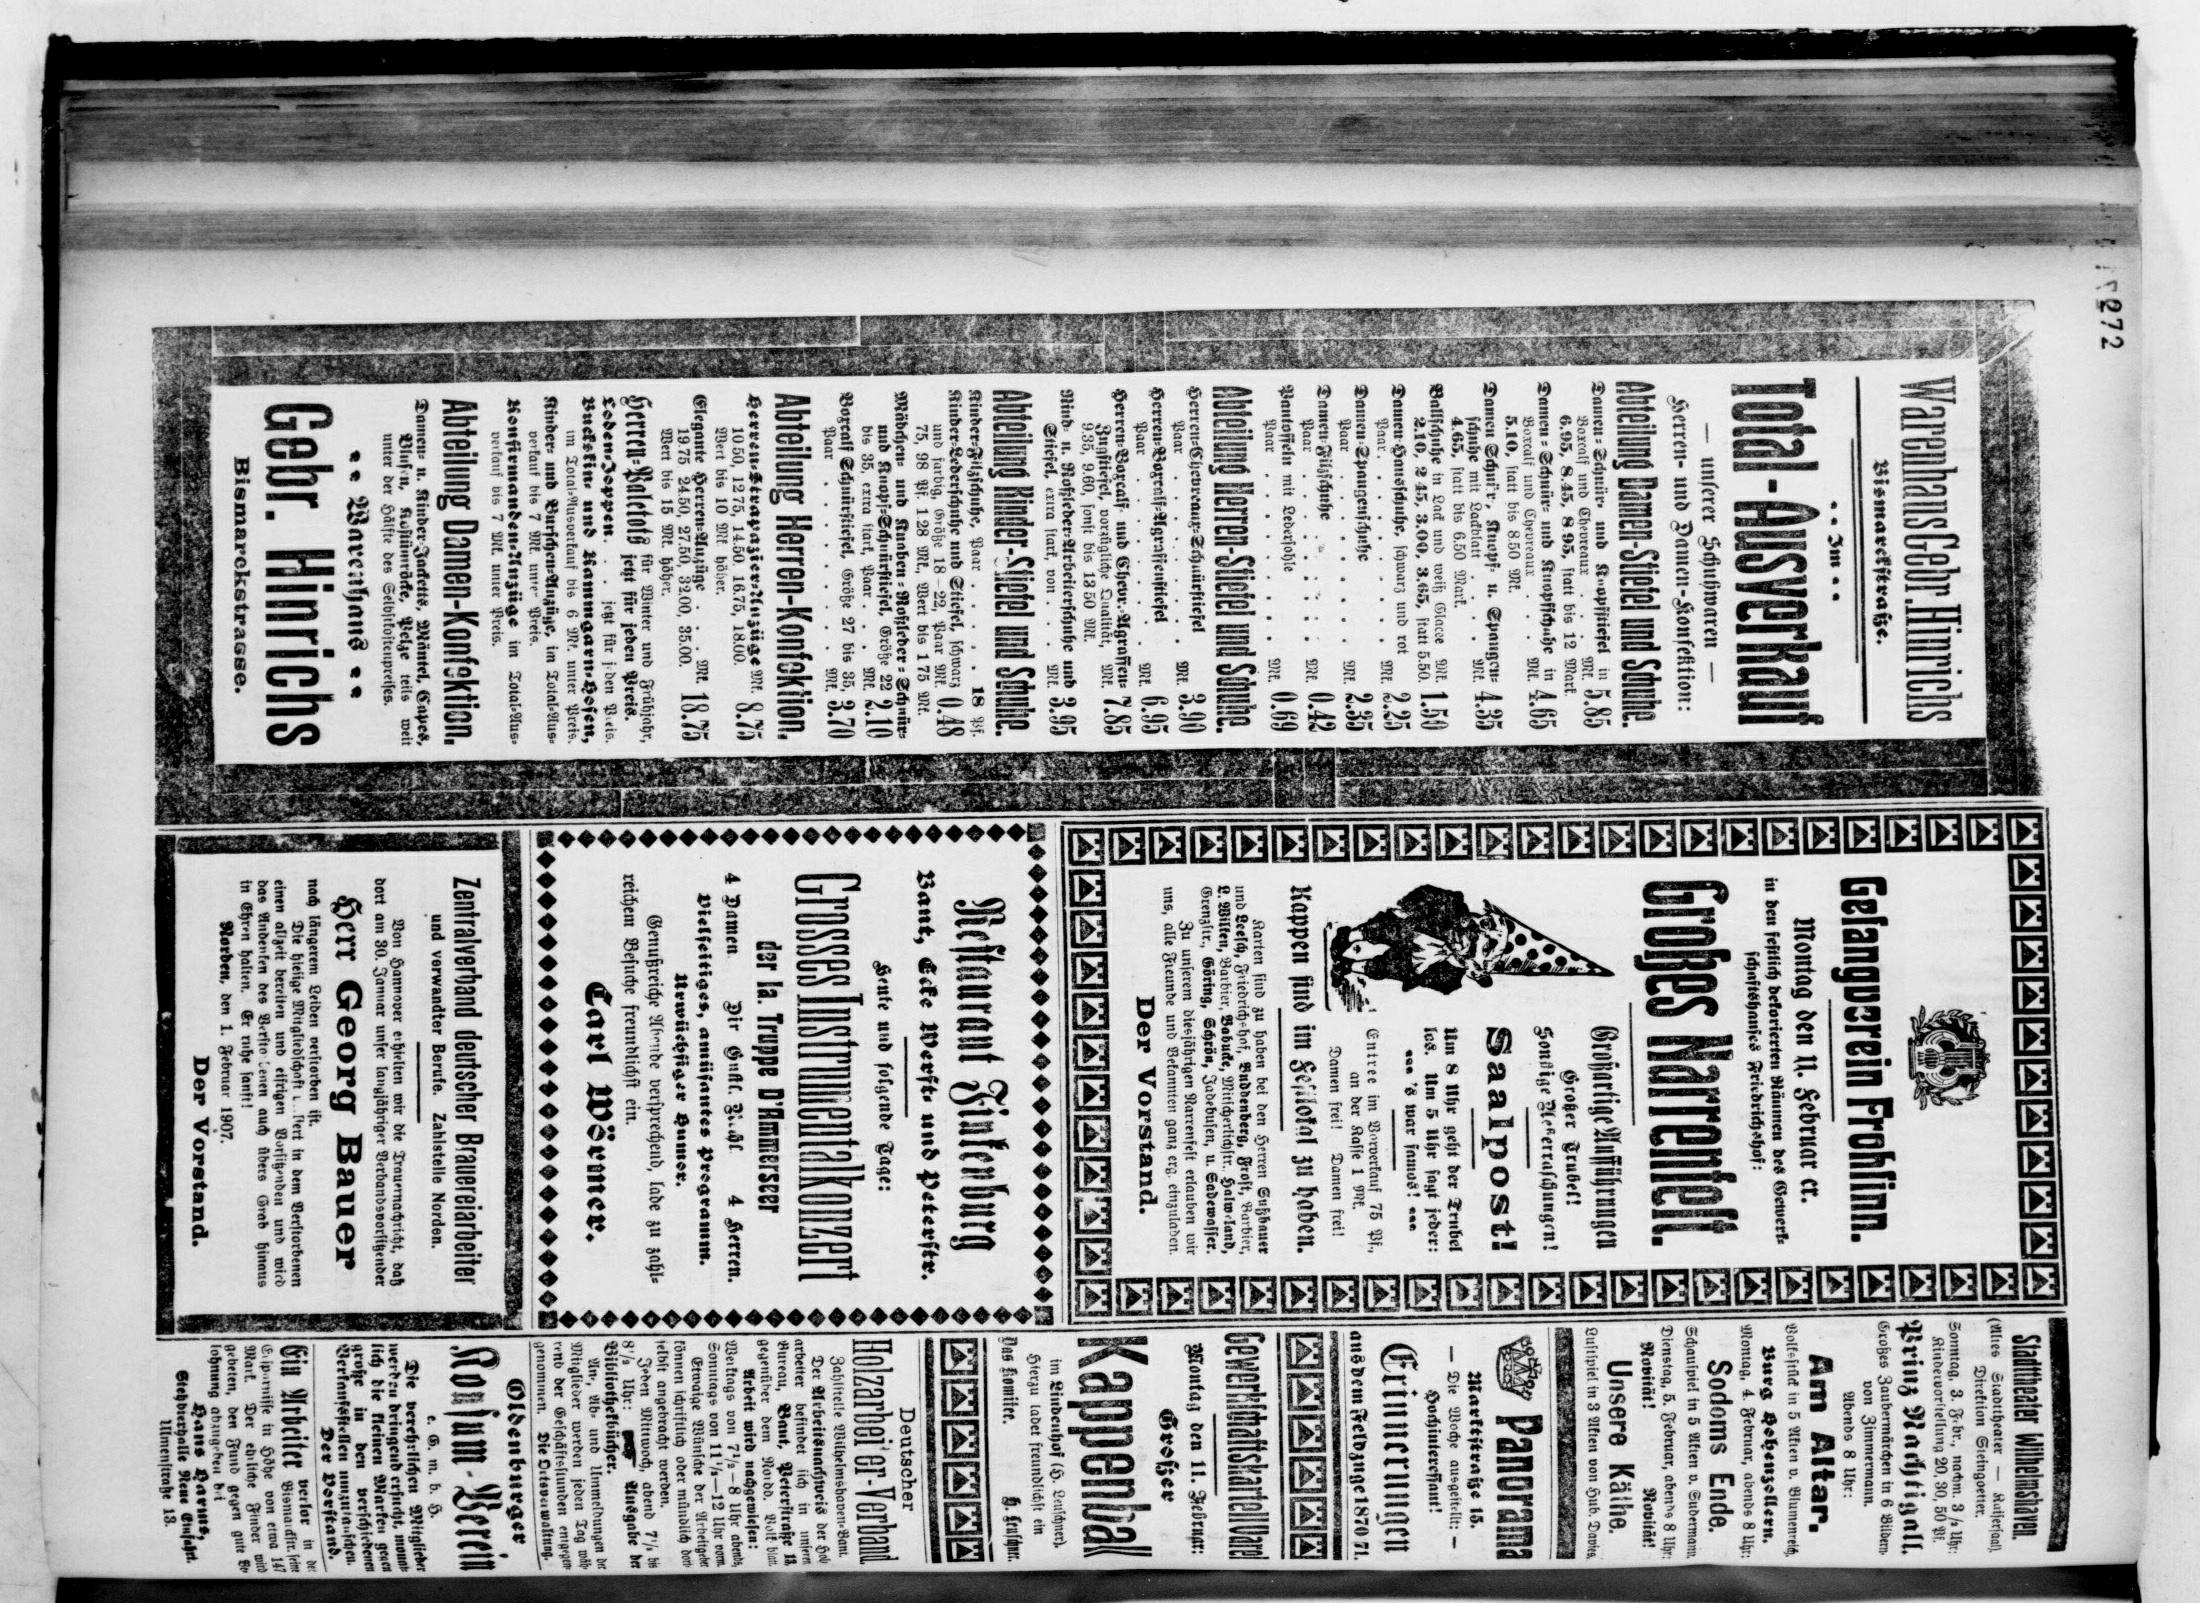 272
Warenhaus Gebr. Hinrichs
Bismarckstraße.
Im
Total-Ausverkauf
— unserer Schuhwaren —
Herren- und Damen-Konfektion:
Abteilung Damen-Stiefel und Schuhe.
Damen-Schnür- und Knopfstiefel in
Boxcalf und Chevreaux . . Mk. 5.85
6.95, 8.45, 8.95, statt bis 12 Mark.
Damen-Schnür- und Knopfschuhe in
Boxcalf und Chevreaux . . Mk. 4.65
5.10, statt bis 8.50 Mk.
Damen Schnür-, Knopf- u. Spangen-
schuhe mit Lackblatt . . . Mk. 4.35
4.65, statt bis 6.50 Mark.
Ballschuhe in Lack und weiß Glacee Mk. 1.50
2.10, 2.45, 3.00, 3.65, statt 5.50.
Damen-Hausschuhe, schwarz und rot
Paar . . . . . . Mk. 2.25
Damen-Spangenschuhe
Paar . . . . . . Mk. 2.35
Damen-Filzschuhe
Paar . . . . . . Mk. 0.42
Pantoffeln mit Ledersohle
Paar . . . . . . Mk. 0.69
Abteilung Herren-Stiefel und Schuhe.
Herren-Chevreaux-Schnürstiefel
Paar . . . . . . Mk. 3.90
Herren-Boxcalf-Agraffenstiefel
Paar . . . . . . Mk. 6.95
Herren-Boxcalf- und Chevr.-Agraffen-
Zugstiefel, vorzügliche Qualität, Mk. 7.85
9.35, 9.60, sonst bis 13.50 Mk.
Rind- u. Roßleder-Arbeiterschuhe und
Stiefel, extra stark, von . . Mk. 3.95
Abteilung Kinder-Stiefel und Schuhe.
Kinder-Filzschuhe, Paar . . . . 18 Pf.
Kinder-Lederschuhe und Stiefel, schwarz
und farbig, Größe 18-22, Paar Mk. 0.48
75, 98 Pf. 1.28 Mk., Wert bis 1.75 Mk.
Mädchen- und Knaben-Roßleder-Schnür-
und Knopf-Schnürstiefel, Größe 22
bis 35, extra stark, Paar . . Mk. 2.10
Boxcalf Schnürstiefel, Größe 27 bis 35,
Paar . . . . . . Mk. 3.70
Abteilung Herren-Konfektion.
Herren-Strapazier-Anzüge Mk. 8.75
10.50, 12.75, 14.50, 16.75, 18.00.
Wert bis 10 Mk. höher.
Elegante Herren-Anzüge . . . Mk. 18.75
19.75, 24.50, 27.50, 32.00, 35.00.
Wert bis 15 Mk. höher.
Herren-Paletots für Winter und Frühjahr,
jetzt für jeden Preis.
Loden-Joppen . . jetzt für jeden Preis.
Buckskin- und Kammgarn-Hosen,
im Total-Ausverkauf bis 6 Mk. unter Preis.
Kinder- und Burschen-Anzüge, im Total-Aus-
verkauf bis 7 Mk. unter Preis.
Konfirmanden-Anzüge im Total-Aus-
verkauf bis 7 Mk. unter Preis.
Abteilung Damen-Konfektion.
Damen- u. Kinder-Jacketts, Mäntel, Capes,
Blusen, Kostümröcke, Pelze teils weit
unter der Hälfte des Selbstkostenpreises.
Warenhaus
Gebr. Hinrichs
Bismarckstrasse.
Gesangverein Frohsinn.
Montag den 11. Februar cr.
in den festlich dekorierten Räumen des Gewerk-
schaftshauses Friedrichshof:
Großes Narrenfest.
Großartige Aufführungen
Großer Trubel!
Sonstige Ueberraschungen!
Saalpost!
Um 8 Uhr geht der Trubel
los. Um 5 Uhr sagt jeder:
's war famos!
Entree im Vorverkauf 75 Pf.,
an der Kasse 1 Mk.
Damen frei! Damen frei!
Kappen sind im Festlokal zu haben.
Karten sind zu haben bei den Herren Sußbauer
und Loesch, Friedrichshof, Buddenberg, Frost, Barbier,
L. Wilken, Barbier, Babucke, Mitscherlichstr., Halweland,
Grenzstr., Göring, Schrön, Jadebusen, u. Sadewasser.
Zu unserem diesjährigen Narrenfest erlauben wir
uns, alle Freunde und Bekannten ganz erg. einzuladen.
Der Vorstand.
Restaurant Finkenburg
Bant, Ecke Werft- und Peterstr.
Heute und folgende Tage:
Grosses Instrumentalkonzert
der Ia. Truppe D'Ammerseer
4 Damen. Dir. Gust. 4 Herren.
Vielseitiges, amüsantes Programm.
Urwüchsiger Humor.
Genußreiche Abende versprechend, lade zu zahl-
reichem Besuche freundlichst ein.
Carl Wörmer.
Zentralverband deutscher Brauereiarbeiter
und verwandter Berufe. Zahlstelle Norden.
Von Hannover erhielten wir die Trauernachricht, daß
dort am 30. Januar unser langjähriger Verbandsvorsitzender
Herr Georg Bauer
nach längerem Leiden verstorben ist.
Die hiesige Mitgliedschaft verliert in dem Verstorbenen
einen allzeit bereiten und eifrigen Vorsitzenden und wird
das Andenken des Verstorbenen auch übers Grab hinaus
in Ehren halten. Er ruhe sanft!
Norden, den 1. Februar 1907.
Der Vorstand.
Stadttheater Wilhelmshaven.
(Altes Stadttheater — Kaisersaal).
Direktion Steingoetter.
Sonntag, 3. Febr., nachm. 3½ Uhr:
Kindervorstellung 20, 30, 50 Pf.
Prinz Nachtigall.
Großes Zaubermärchen in 6 Bildern
von Zimmermann.
Abends 8 Uhr:
Am Altar.
Volksstück in 5 Akten v. Blumenreich.
Burg Hohenzollern.
Montag, 4. Februar, abends 8 Uhr:
Sodoms Ende.
Schauspiel in 5 Akten v. Sudermann.
Dienstag, 5. Februar, abends 8 Uhr:
Novität! Novität!
Unsere Käthe.
Lustspiel in 3 Akten von Hub. Davies.
Panorama
Marktstraße 15.
— Die Woche ausgestellt: —
Hochinteressant!
Erinnerungen
aus dem Feldzuge 1870/71.
Gewerkschaftskartell Varel
Montag den 11. Februar:
Großer
Kappenball
im Lindenhof (H. Leuschner).
Hierzu ladet freundlichst ein
Das Komitee. H. Leuschner.
Deutscher
Holzarbeiter-Verband
Zahlstelle Wilhelmshaven-Bant.
Der Arbeitsnachweis der Holz-
arbeiter befindet sich in unserm
Bureau, Bant, Peterstraße 18,
gegenüber dem Nordd. Volksblatt.
Arbeit wird nachgewiesen:
Werktags von 7½—8 Uhr abends,
Sonntags von 11½—12 Uhr vorm.
Etwaige Wünsche der Arbeitgeber
können schriftlich oder mündlich dort-
selbst angebracht werden.
Jeden Mittwoch, abend 7½ bis
8½ Uhr: Ausgabe der
Bibliothekbücher.
An-, Ab- und Ummeldungen der
Mitglieder werden jeden Tag wäh-
rend der Geschäftsstunden entgegen-
genommen. Die Ortsverwaltung.
Oldenburger
Konsum-Verein
e. G. m. b. H.
Die verehrlichen Mitglieder
werden dringend ersucht, monat-
lich die kleinen Marken gegen
große in den verschiedenen
Verkaufsstellen umzutauschen.
Der Vorstand.
Ein Arbeiter verlor in der
Bismarckstr. seine
Ersparnisse in Höhe von etwa 147
Mark. Der ehrliche Finder wird
gebeten, den Fund gegen gute Be-
lohnung abzugeben bei
Hans Harms,
Siebdierhalle Neue Einfahrt.
Ulmenstraße 13.